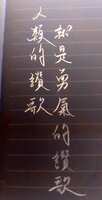 都是勇氣的讚歌
人類的讚歌